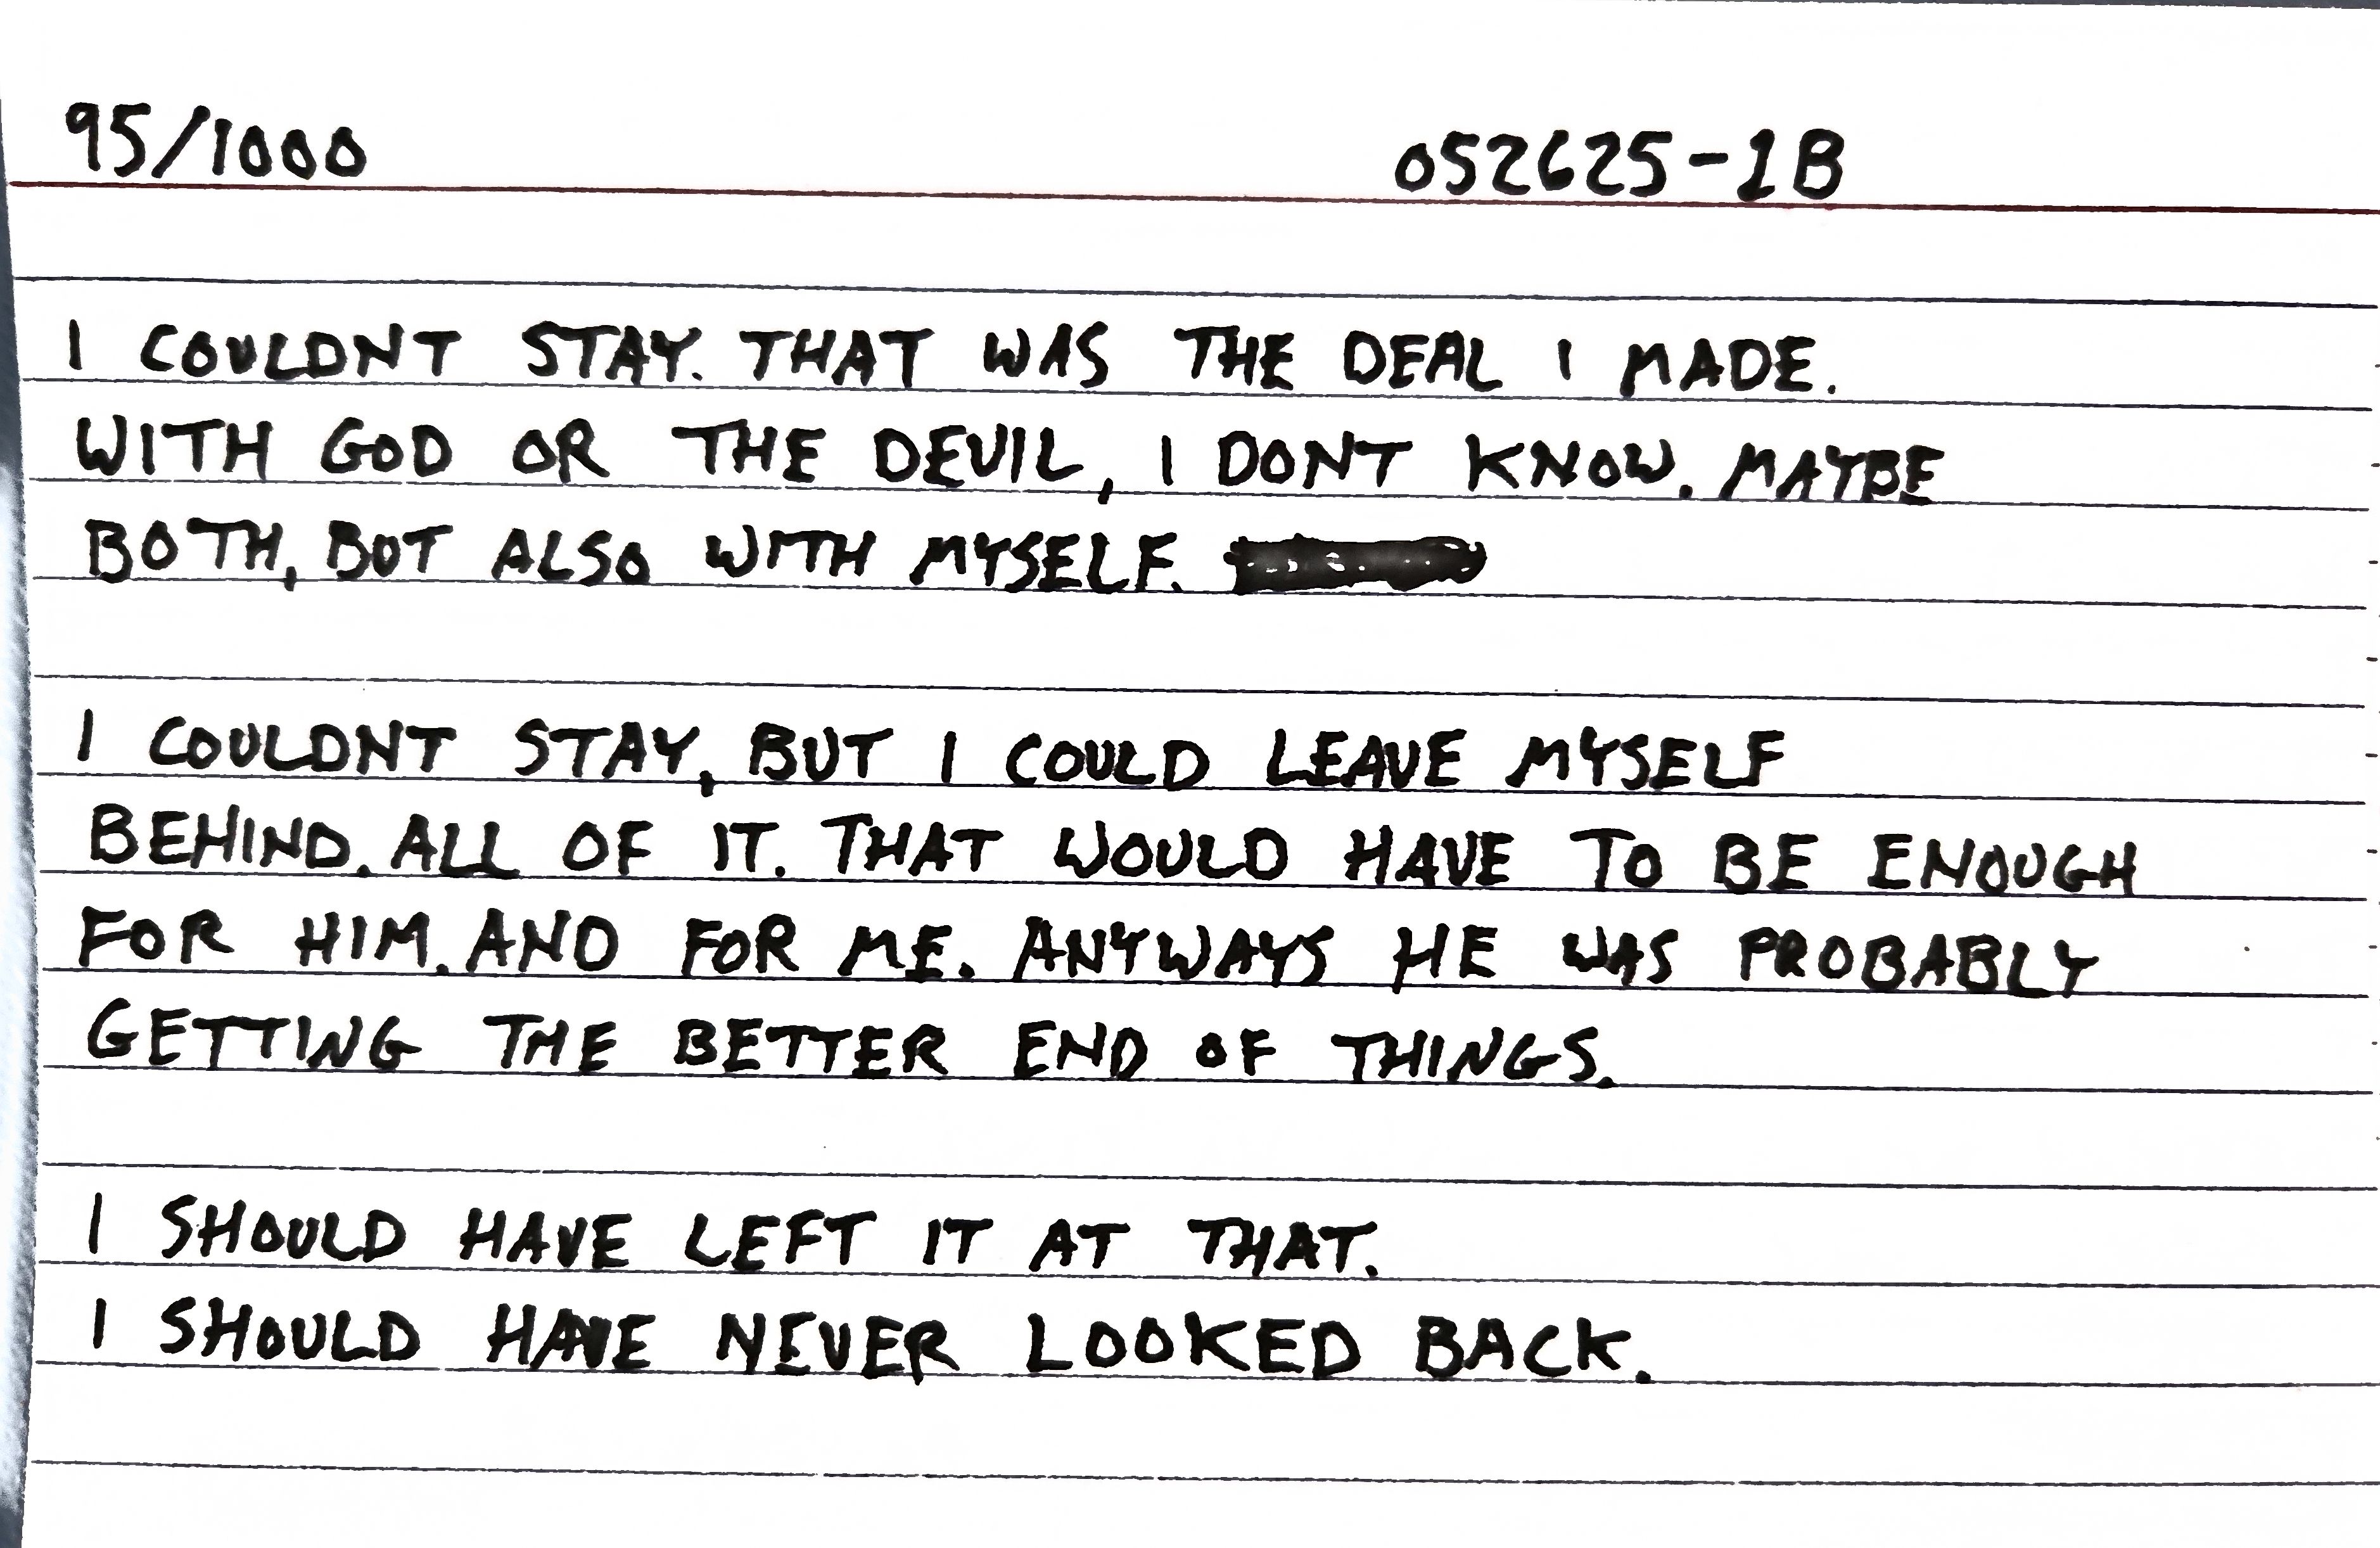 95/1000 052625-1B
I COULDNT STAY. THAT WAS THE DEAL I MADE.
WITH GOD OR THE DEVIL, I DONT KNOW. MAYBE
BOTH, BUT ALSO WITH MYSELF.
I COULDNT STAY, BUT I COULD LEAVE MYSELF
BEHIND. ALL OF IT. THAT WOULD HAVE TO BE ENOUGH
FOR HIM. AND FOR ME. ANYWAYS HE WAS PROBABLY
GETTING THE BETTER END OF THINGS.
I SHOULD HAVE LEFT IT AT THAT.
I SHOULD HAVE NEVER LOOKED BACK.